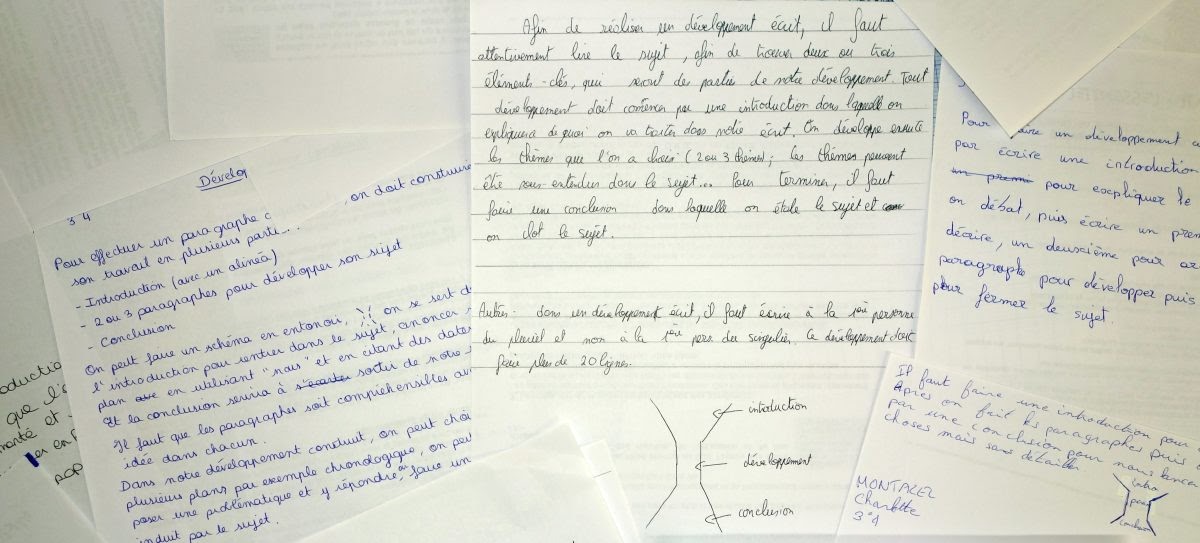 Afin de réaliser un développement écrit, il faut
attentivement lire le sujet, afin de trouver deux ou trois
éléments-clés, qui seront des parties de notre développement. Tout
développement doit commencer par une introduction dans laquelle on
expliquera de quoi on va traiter dans notre écrit. On développe ensuite
les thèmes que l'on a choisi (2 ou 3 thèmes); les thèmes peuvent
être sous-entendus dans le sujet... Pour terminer, il faut
faire une conclusion dans laquelle on étale le sujet et
on clot le sujet.
Autres: dans un développement écrit, il faut écrire à la 1ère personne
du pluriel et non à la 1ère pers du singulier. Ce développement doit
faire plus de 20 lignes.
introduction
développement
conclusion
34
Dévelop
Pour effectuer un paragraphe c , on doit construire
son travail en plusieurs parti...
- Introduction (avec un alinéa)
- 2 ou 3 paragraphes pour développer son sujet
- Conclusion
On peut faire un schéma en entonoir, on se sert de
l'introduction pour rentrer dans le sujet, anoncer
plan en utilisant "nous" et en citant des dates
Et la conclusion servira à sortir de notre
Il faut que les paragraphes soit compréhensibles
idée dans chacun.
Dans notre développement construit, on peut choi
plusieurs plans par exemple chronologique, on peut
poser une problématique et y répondre, ou faire un
induit par le sujet.
oductio
que l'
manté et
er en
Pour un développement
par écrire une introduction
un premi pour expliquer le
on débat, puis écrire un prem
décrire, un deuxième pour
paragraphe pour développer puis
pour fermer le sujet.
Il faut faire une introduction pour
Après on fait les paragraphes puis
par une conclusion pour nous
choses mais sans détailler
MONTAZEL
Charlotte
3°4
intro
conclusion